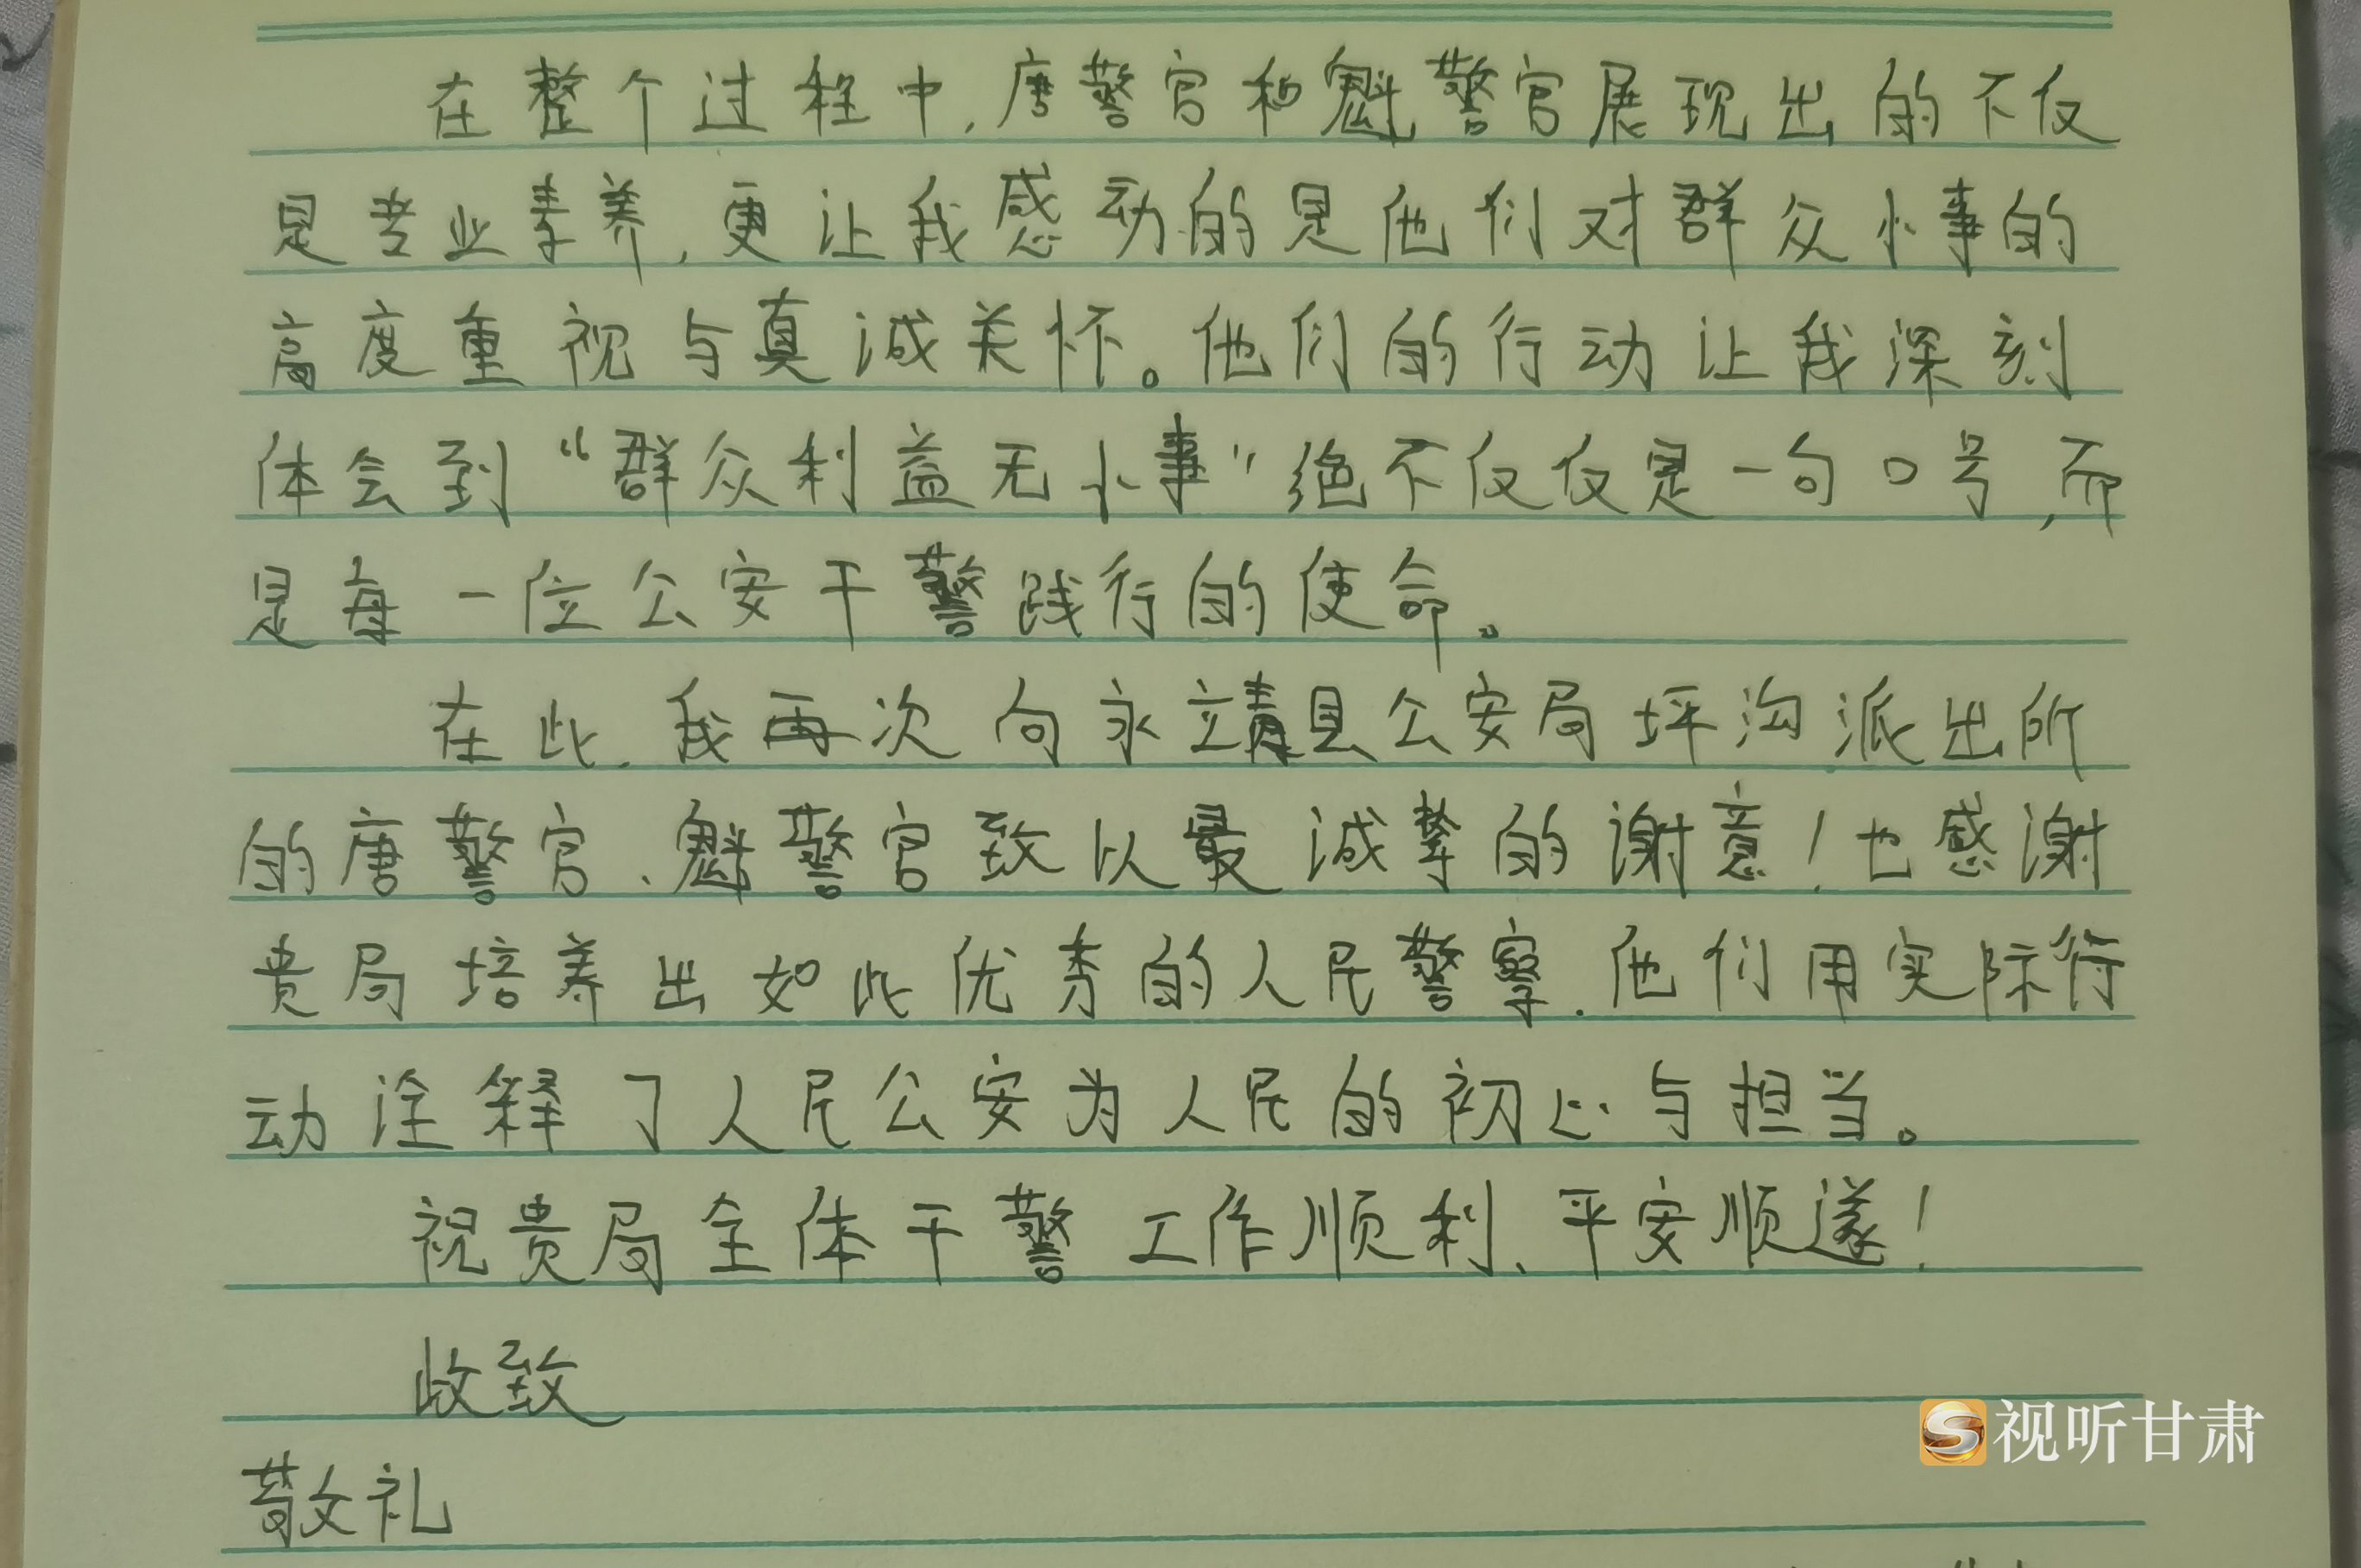 在整个过程中,唐警官和魁警官展现出的不仅
是专业素养,更让我感动的是他们对群众小事的
高度重视与真诚关怀。他们的行动让我深刻
体会到“群众利益无小事”绝不仅仅是一句口号,而
是每一位公安干警践行的使命。
在此,我再次向永靖县公安局坪沟派出所
的唐警官、魁警官致以最诚挚的谢意!也感谢
贵局培养出如此优秀的人民警察.他们用实际行
动诠释了人民公安为人民的初心与担当。
祝贵局全体干警工作顺利、平安顺遂!
收致
敬礼
视听甘肃